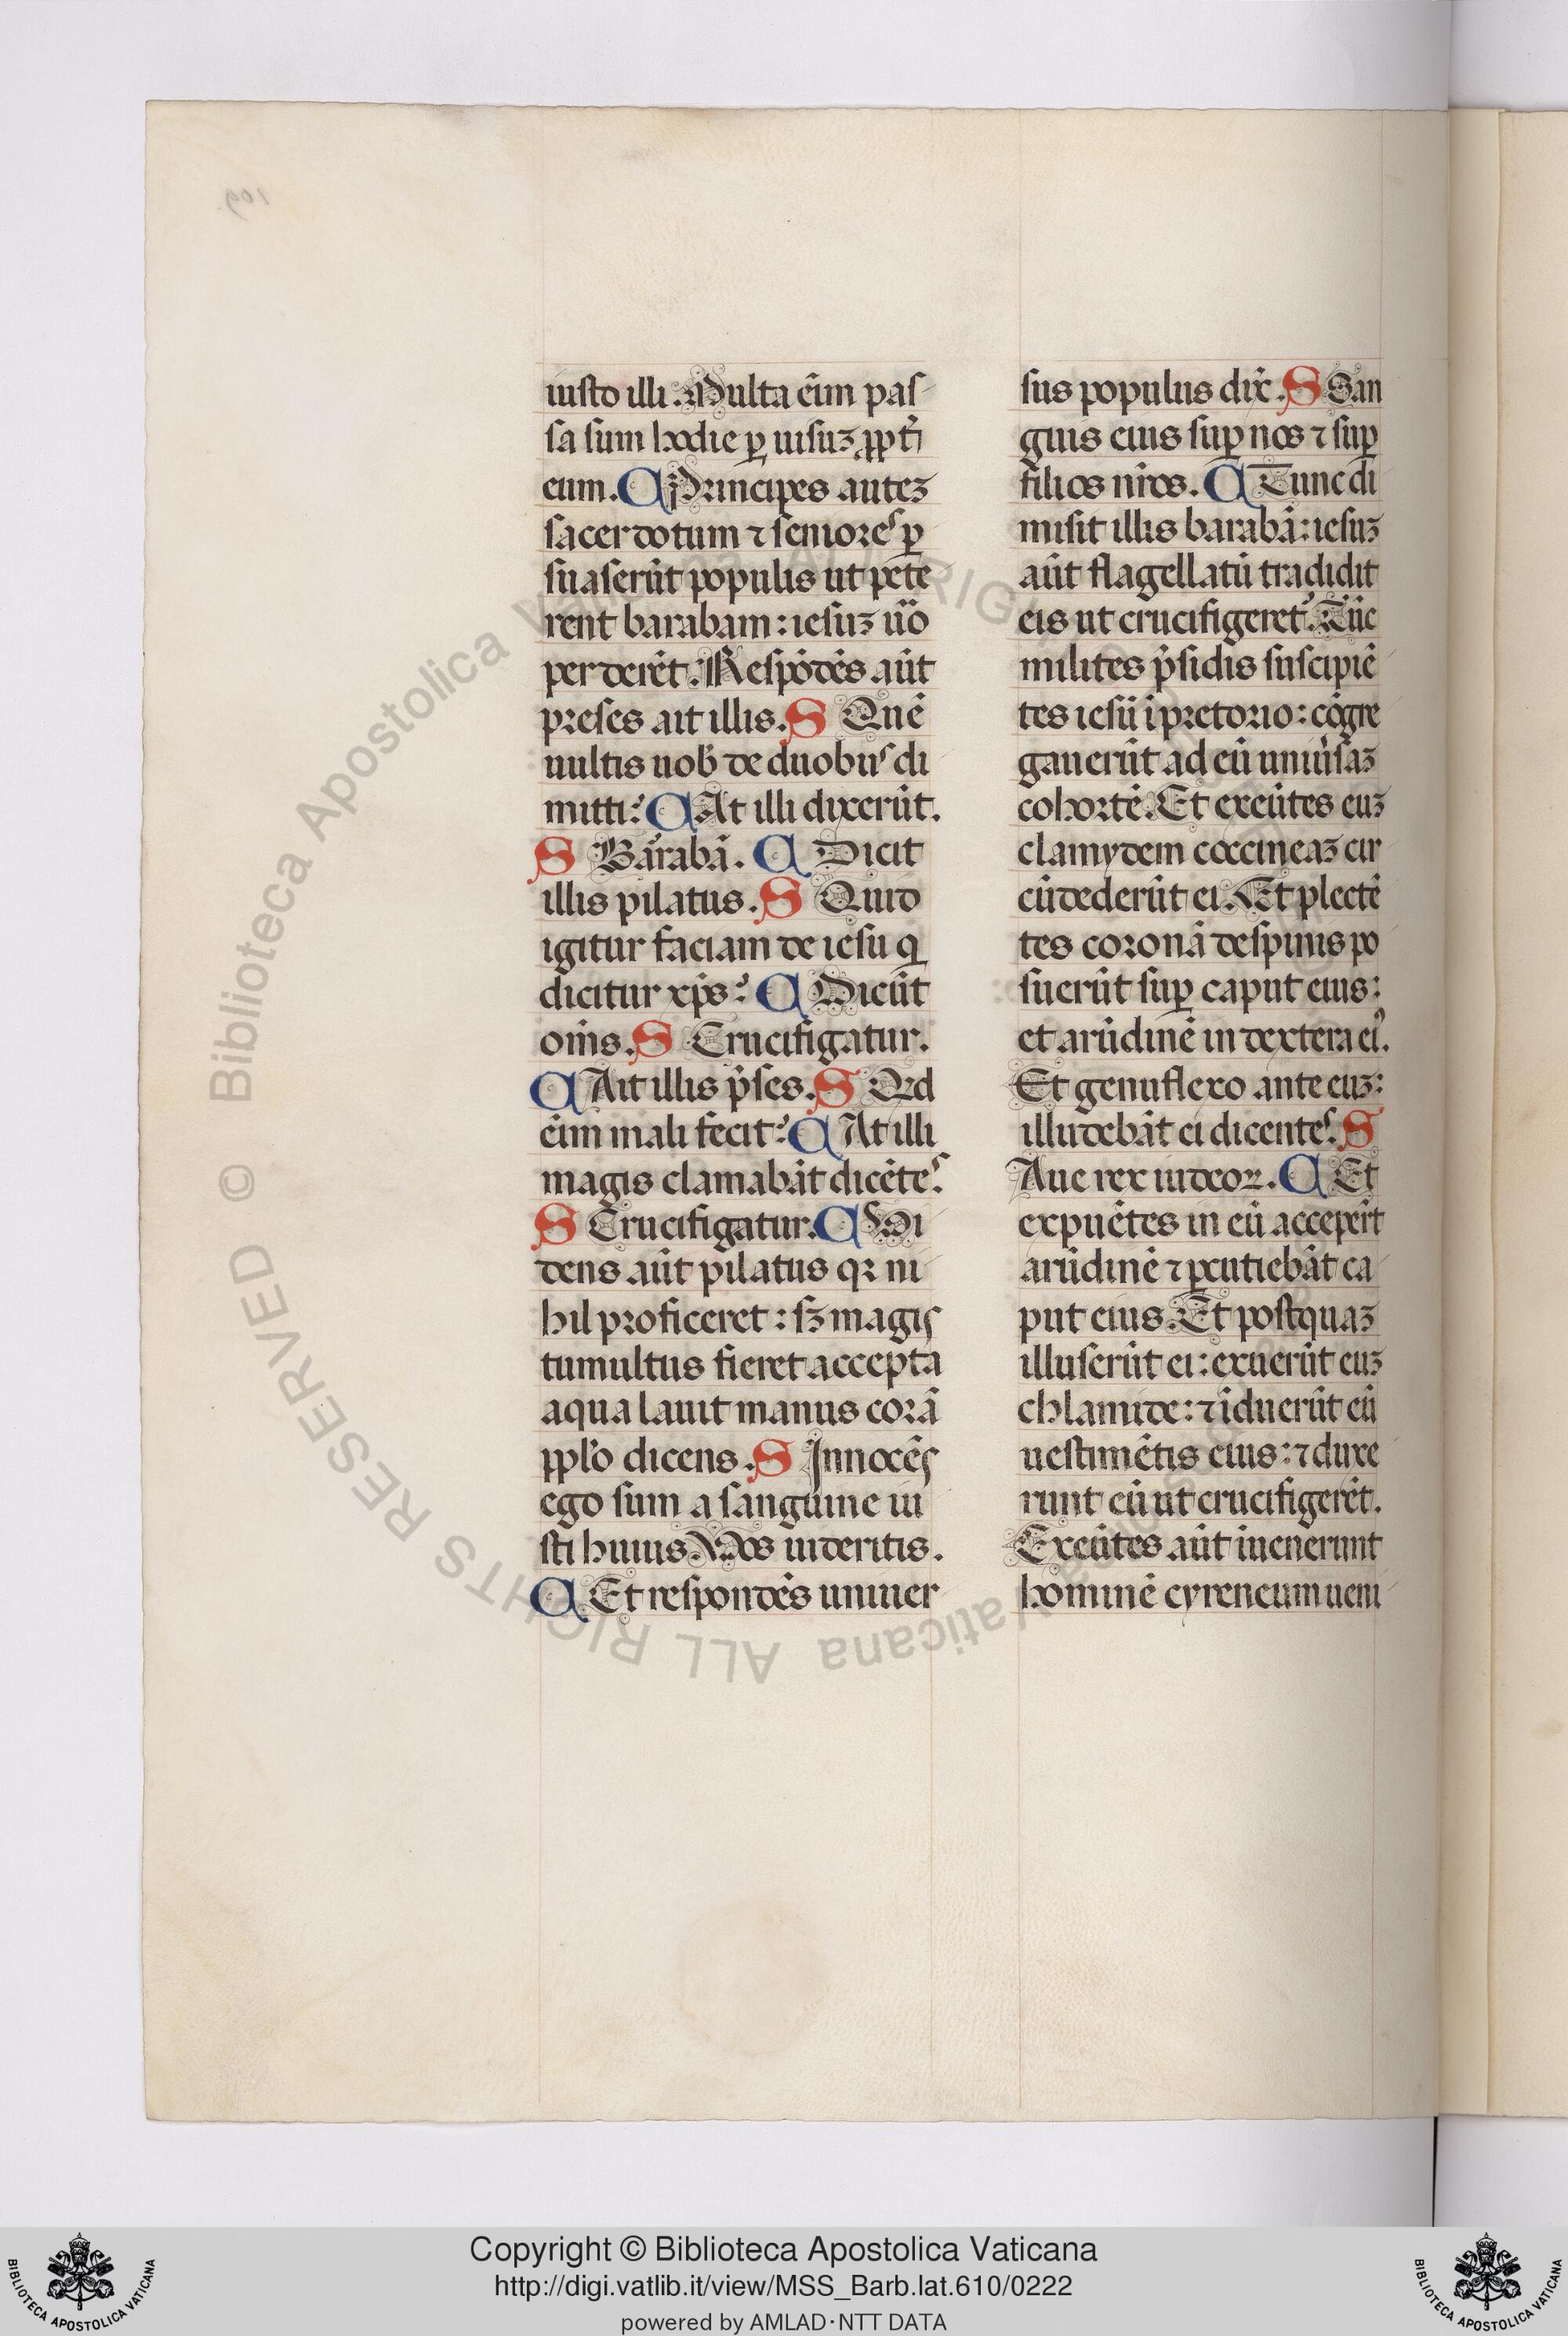 iusto illi. Multa eīm pas
sa sum hodie ꝑ uisuꝫ ꝓpt̄
eum. C Principes auteꝫ
sacerdotum ⁊ seniores ꝑ
suaserūt populis ut pete
rent barabam: iesuꝫ u̅o
perderēt. Respōdēs aūt
preses ait illis. S Quē
uultis uob̄ de duobus di
mitti? C At illi dixerūt.
S Barabā. C Dicit
illis pilatus. S Quid
igitur faciam de iesu qͥ
dicitur xp̄s? C Dicūt
om̄s. S Crucifigatur.
C Ait illis p̄ses. S Qͥd
eīm mali fecit? C At illi
magis clamabāt dicētes.
S Crucifigatur. C Vi
dens aūt pilatus qꝛ ni
hil proficeret: sꝫ magis
tumultus fieret accepta
aqua lauit manus corā
pplo dicens. S Innocēs
ego sum a sanguine iu
sti huius. Vos uideritis.
C Et respondēs uniuer
sus populus dix̄. S San
guis eius suꝑ nos ⁊ suꝑ
filios nr̄os. C Tunc di
misit illis barabā: iesuꝫ
aūt flagellatū tradidit
eis ut crucifigeret᷑. Tūc
milites p̄sidis suscipiē
tes iesū ī pretorio: cōgre
gauerūt ad eū uniūsaꝫ
cohortē. Et exeūtes euꝫ
clamydem coccineaꝫ cir
cūdederūt ei. Et plectē
tes coronā despinis po
suerūt suꝑ caput eius:
et arūdinē in dextera eiꝰ.
Et genuflexo ante euꝫ:
illudebāt ei dicentes. S
Aue rex iudeoꝝ. C Et
expuētes in eū accepēr̄t
arūdinē ⁊ ꝑcutiebāt ca
put eius. Et postquaꝫ
illuserūt ei: exuerūt euꝫ
chlamide: ⁊ īduerūt eū
uestimētis eius: ⁊ duxe
runt eū ut crucifigerēt.
Exeūtes aūt īuenerunt
hominē cyreneum ueni
109
© Biblioteca Apostolica Vaticana ALL RIGHTS RESERVED
Copyright © Biblioteca Apostolica Vaticana
http://digi.vatlib.it/view/MSS_Barb.lat.610/0222
powered by AMLAD·NTT DATA
BIBLIOTECA APOSTOLICA VATICANA
BIBLIOTECA APOSTOLICA VATICANA